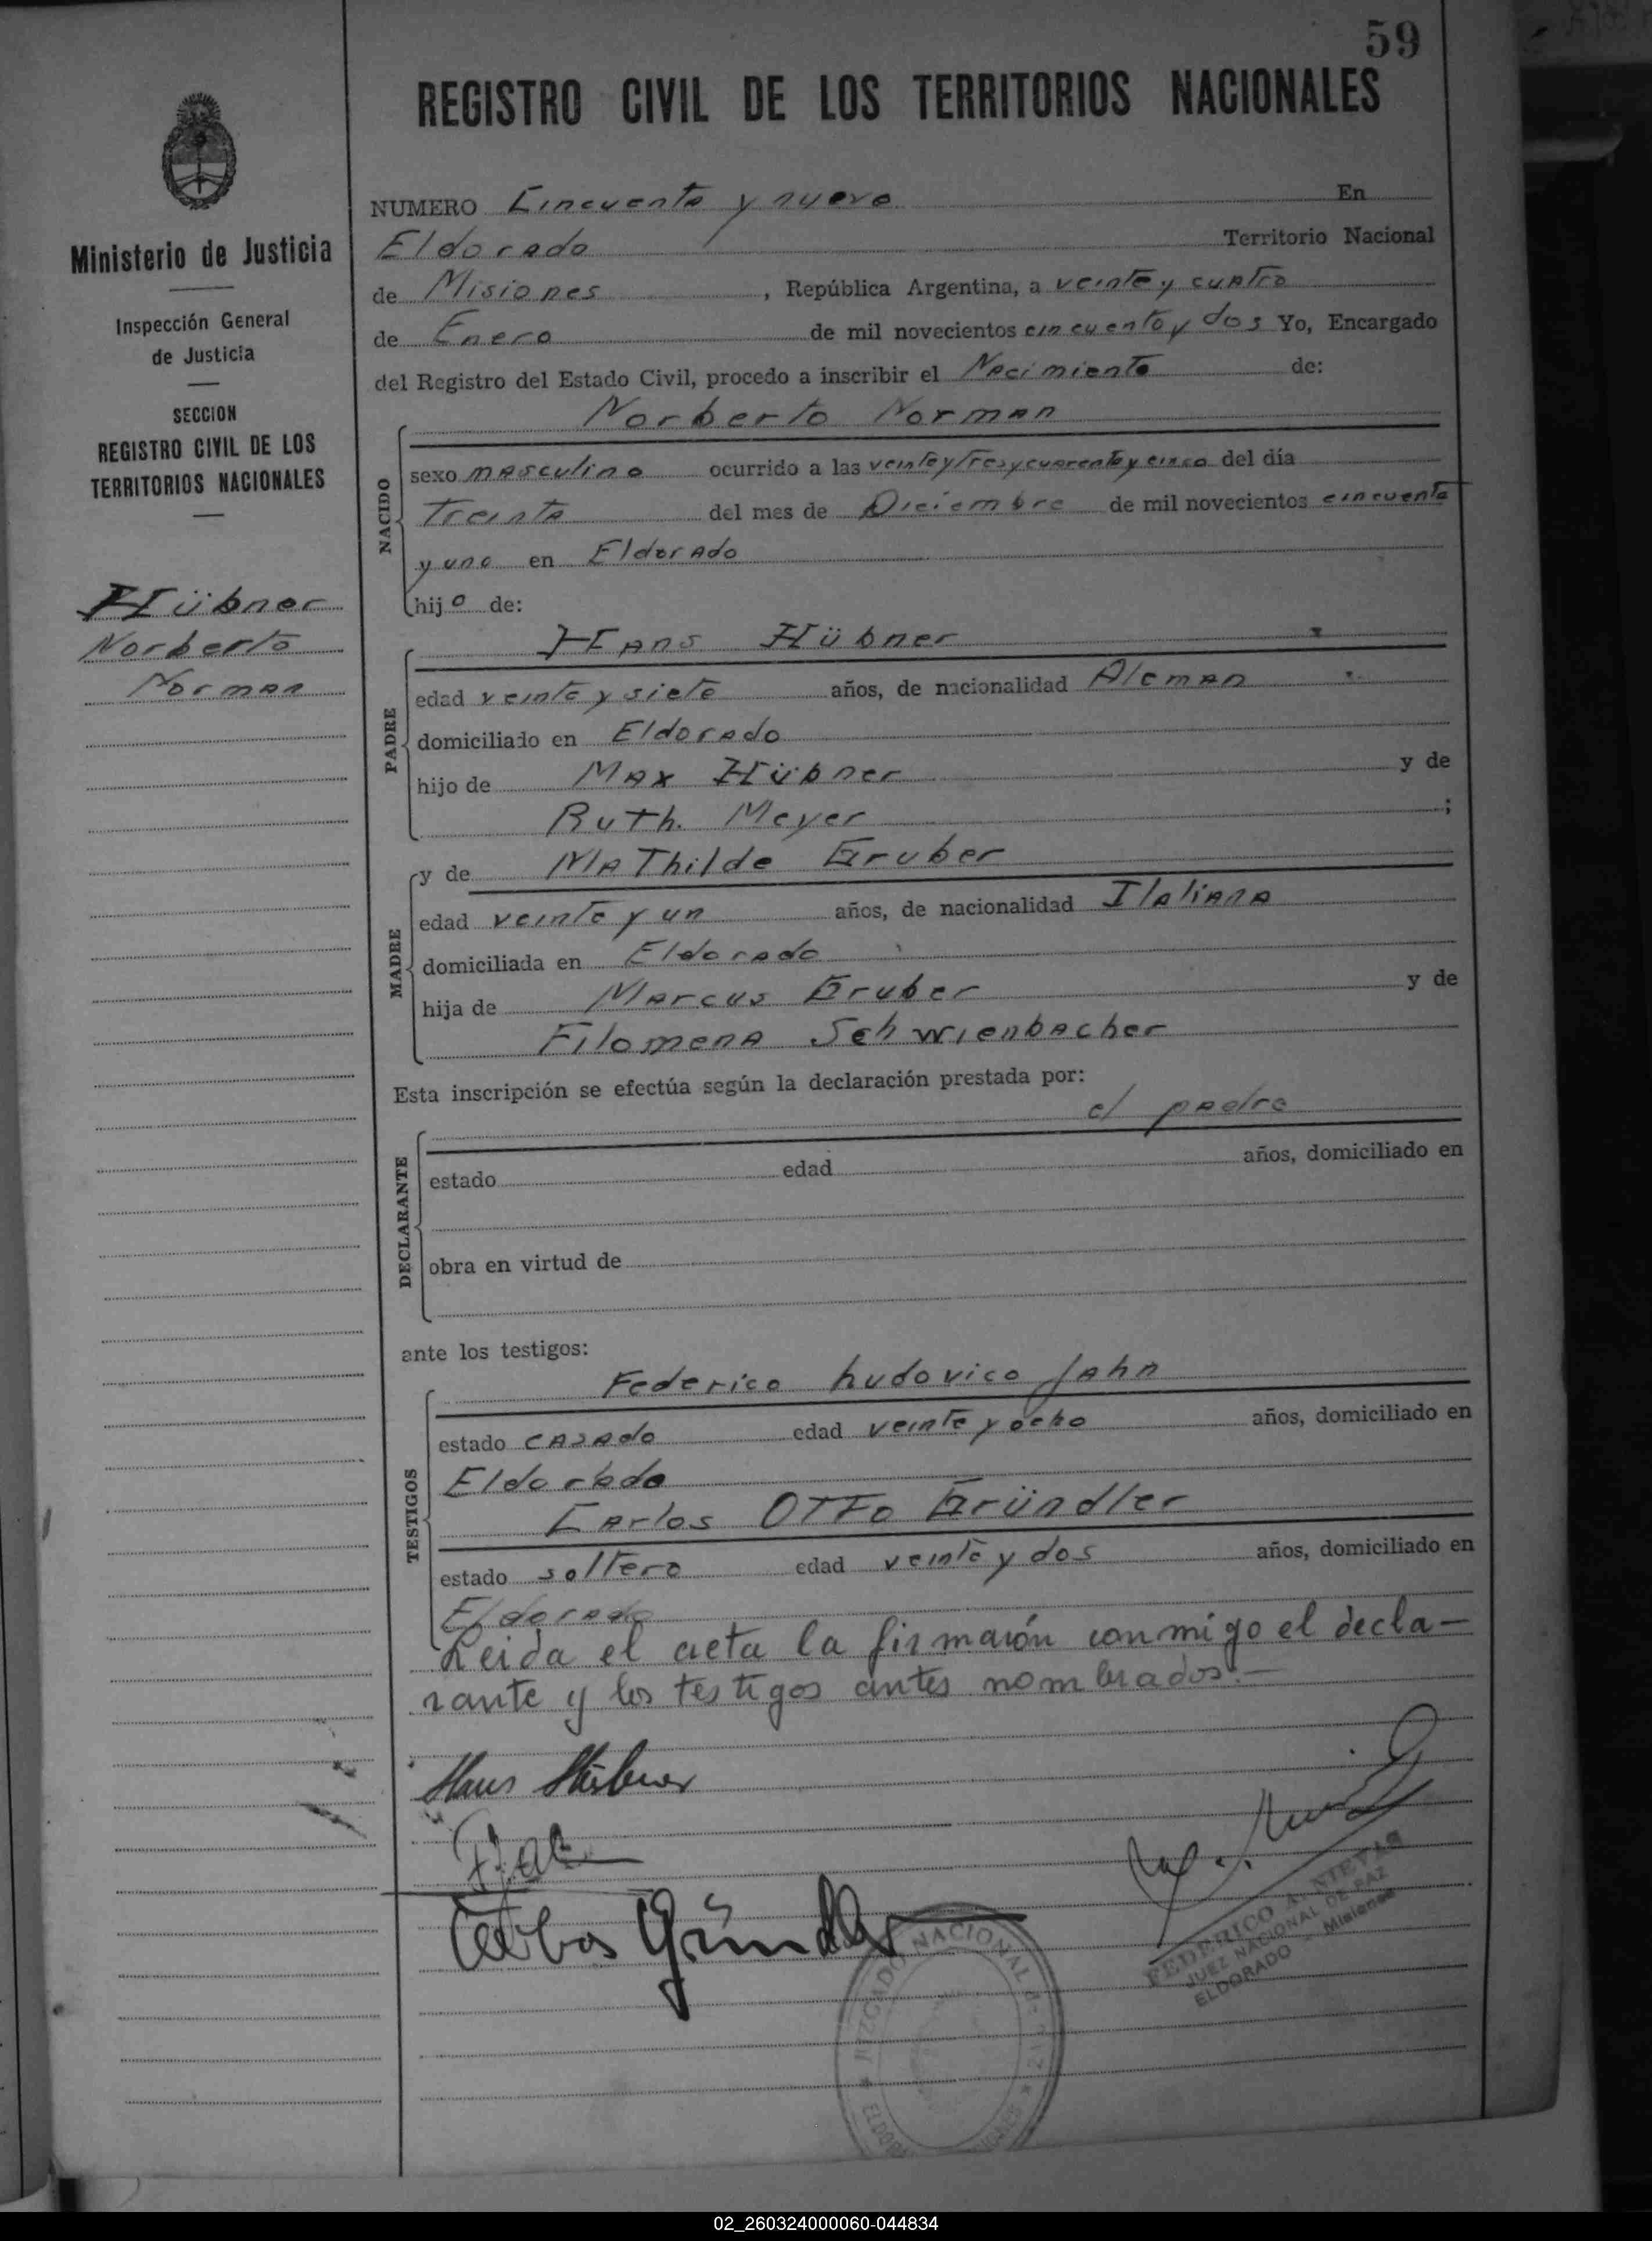 59
REGISTRO CIVIL DE LOS TERRITORIOS NACIONALES
Ministerio de Justicia
Inspección General
de Justicia
SECCION
REGISTRO CIVIL DE LOS
TERRITORIOS NACIONALES
Hübner
Norberto
Norman
NUMERO Cincuenta y nueve En
Eldorado Territorio Nacional
de Misiones, República Argentina, a veinte y cuatro
de Enero de mil novecientos cincuenta y dos Yo, Encargado
del Registro del Estado Civil, procedo a inscribir el Nacimiento de:
Norberto Norman
NACIDO
sexo masculino ocurrido a las veinte y tres y cuarenta y cinco del día
Treinta del mes de Diciembre de mil novecientos cincuenta
y uno en Eldorado
hijo de:
Hans Hübner
PADRE
edad veinte y siete años, de nacionalidad Aleman
domiciliado en Eldorado
hijo de Max Hübner y de
Ruth. Meyer ;
y de Mathilde Gruber
MADRE
edad veinte y un años, de nacionalidad Italiana
domiciliada en Eldorado
hija de Marcus Gruber y de
Filomena Schwienbacher
Esta inscripción se efectúa según la declaración prestada por:
el padre
DECLARANTE
estado edad años, domiciliado en
obra en virtud de
ante los testigos:
Federico Ludovico Jahn
TESTIGOS
estado casado edad veinte y ocho años, domiciliado en
Eldorado
Carlos Otto Gründler
estado soltero edad veinte y dos años, domiciliado en
Eldorado
Leida el acta la firmarón conmigo el decla-
rante y los testigos antes nombrados.-
Hans Hübner
Carlos Gründler
FEDERICO A. NIEVAS
JUEZ NACIONAL DE PAZ
ELDORADO - Misiones
JUZGADO NACIONAL DE PAZ
02_260324000060-044834